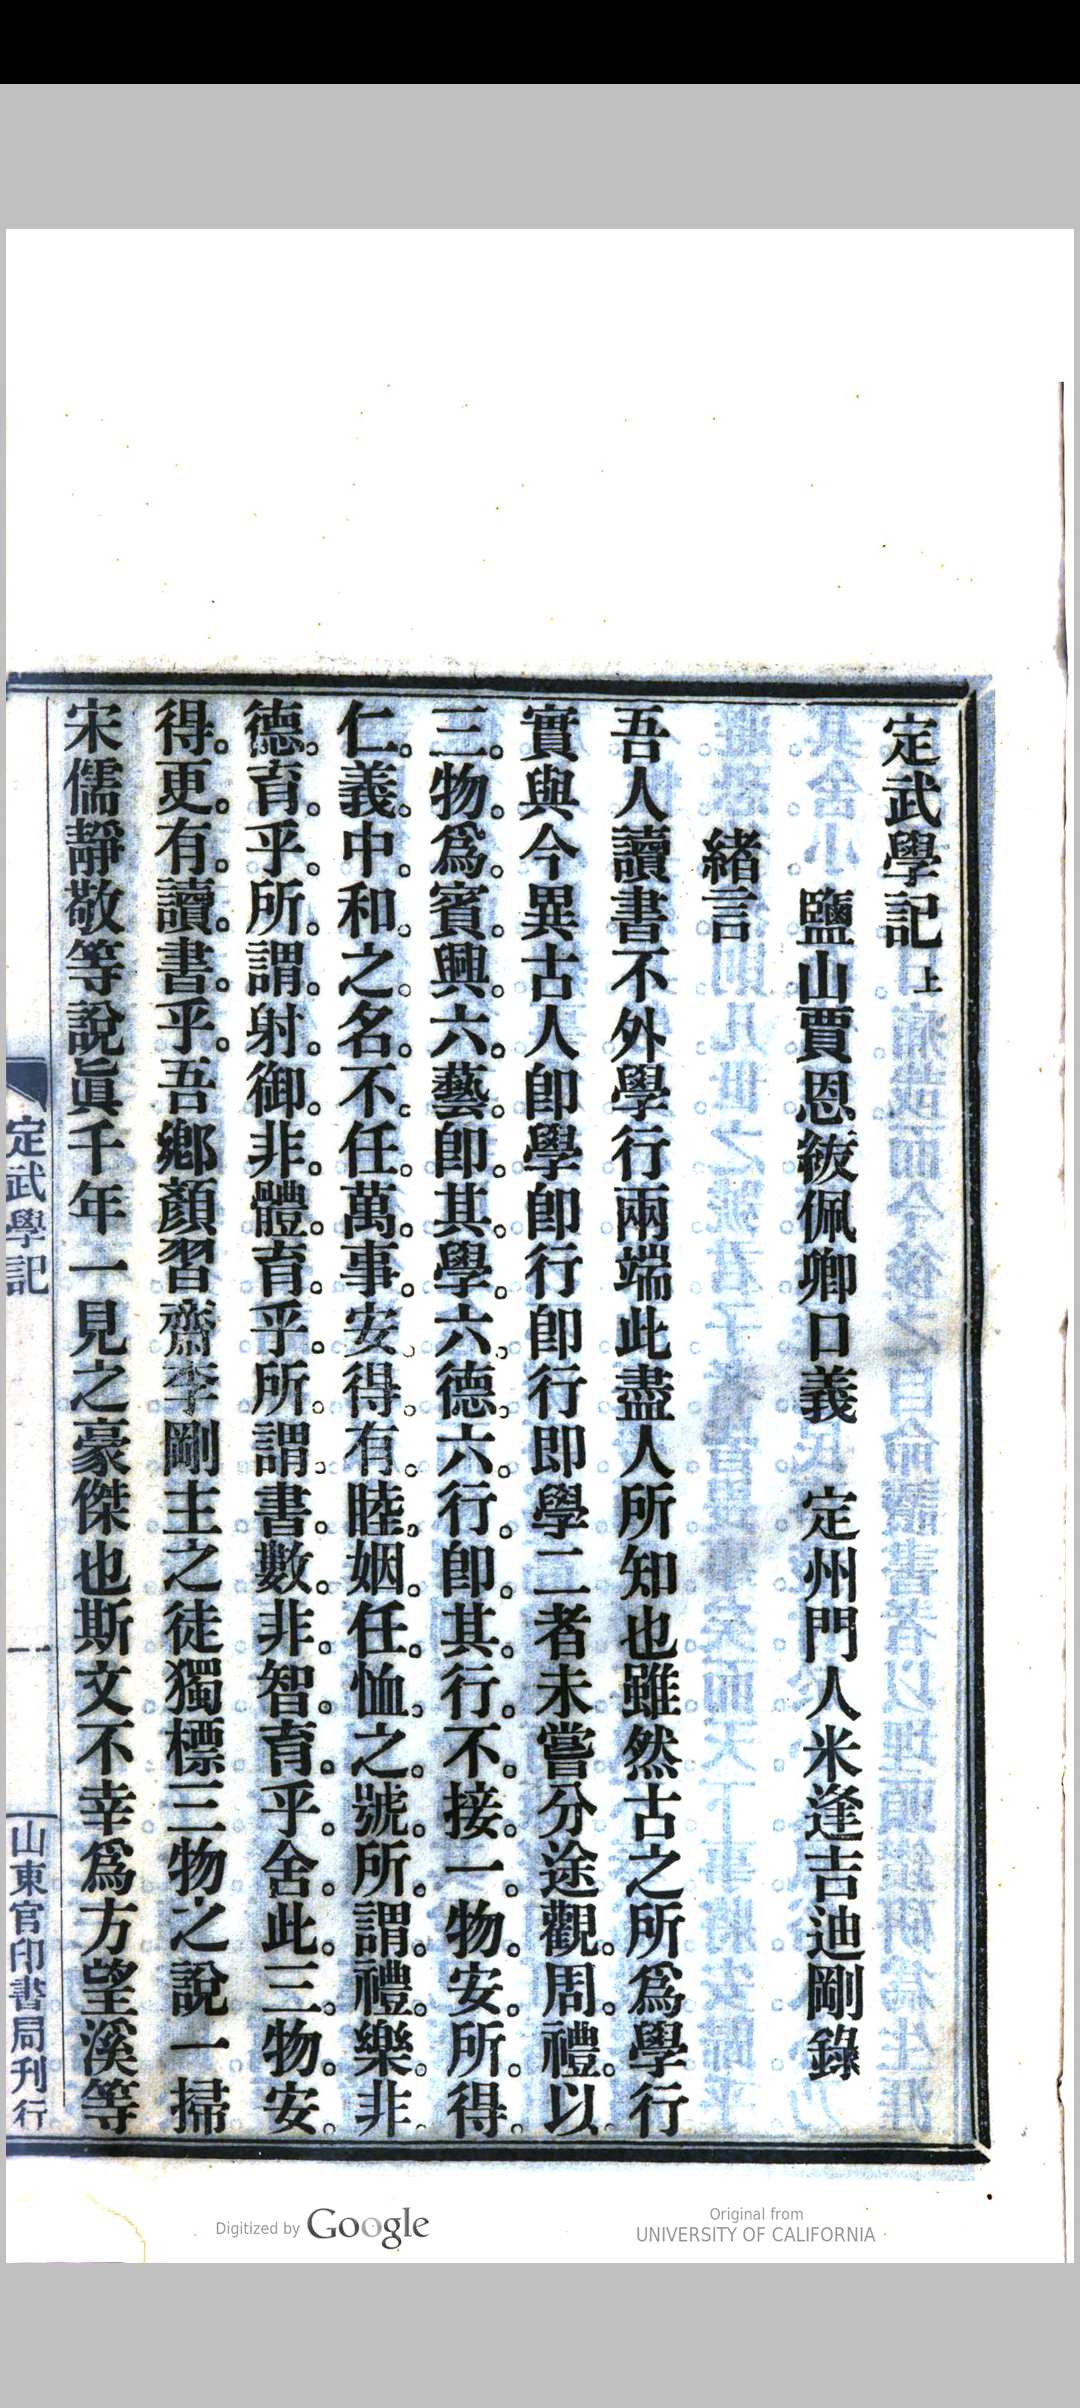 定武學記上
鹽山賈恩紱佩卿口義　定州門人米逢吉迪剛錄
緒言
吾人讀書不外學行兩端此盡人所知也雖然古之所爲學行
實與今異古人卽學卽行卽行卽學二者未嘗分途觀。周。禮。以
三。物。爲。賓。興。六。藝。卽。其。學。六。德。六。行。卽。其。行。不。接。一。物。安。所。得。
仁。義。中。和。之。名。不。任。萬。事。安。得。有。睦。姻。任。恤。之。號。所。謂。禮。樂。非。
德。育。乎。所。謂。射。御。非。體。育。乎。所。謂。書。數。非。智。育。乎。舍。此。三。物。安。
得。更。有。讀。書。乎吾鄉顏習齋李剛主之徒獨標三物之說一掃
宋儒靜敬等說眞千年一見之豪傑也斯文不幸爲方望溪等
定武學記
一
山東官印書局刊行
Digitized by Google
Original from
UNIVERSITY OF CALIFORNIA